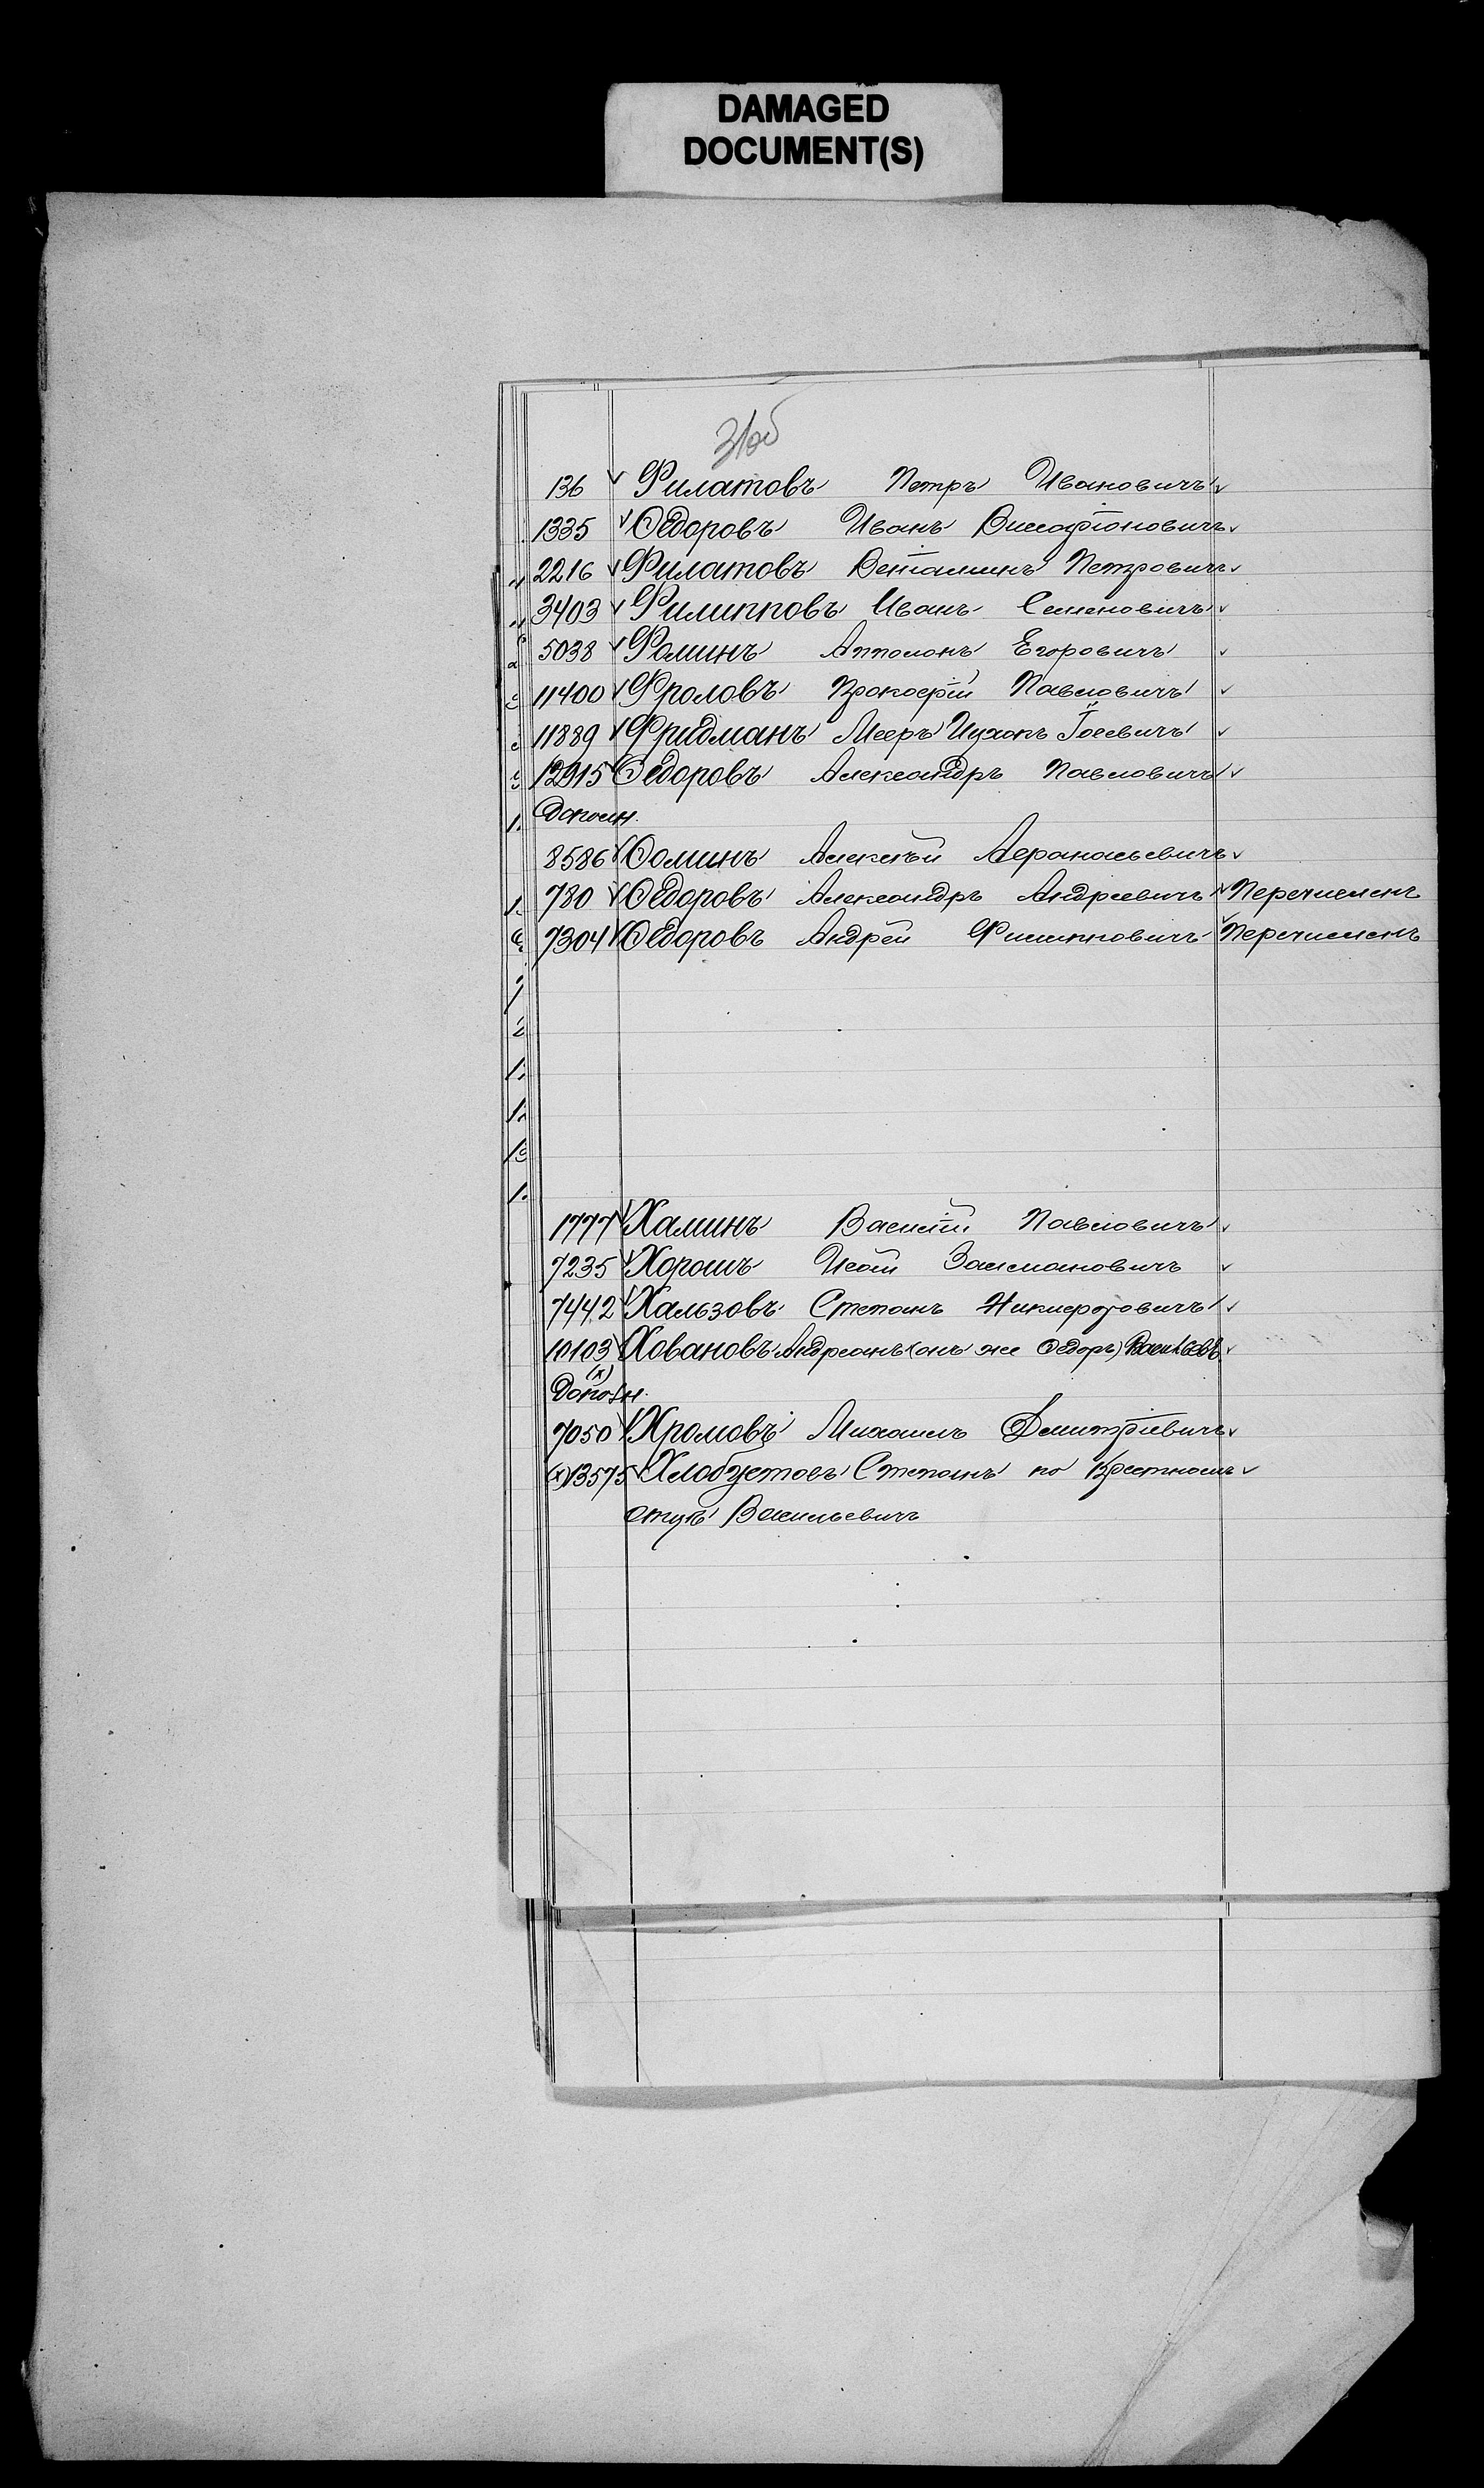 DAMAGED
DOCUMENT(S)
31об
136 Филатовъ Петръ Ивановичъ
1335 Ѳедоровъ Иванъ Виссаріоновичъ
2216 Филатовъ Веніаминъ Петровичъ
3403 Филипповъ Иванъ Семеновичъ
5038 Фоминъ Апполонъ Егоровичъ
11400 Фроловъ Прокофій Павловичъ
11889 Фридманъ Мееръ Ицхокъ
12915 Ѳедоровъ Александръ Павловичъ
Дополн.
8586 Ѳоминъ Алексѣй Афанасьевичъ
780 Ѳедоровъ Александръ Андреевичъ Перечисленъ
7304 Ѳедоровъ Андрей Филипповичъ Перечисленъ
1777 Халинъ Василій Павловичъ
7235 Хорошъ Исай Залмановичъ
7442 Хальзовъ Степанъ Никифоровичъ
10103 Ховановъ Андреанъ (онъ же Ѳедоръ)
(х)
Дополн.
7050 Хромовъ Михаилъ Дмитріевичъ
(х) 13575 Хлобустовъ Степанъ по Крестному
отцу Васильевичъ